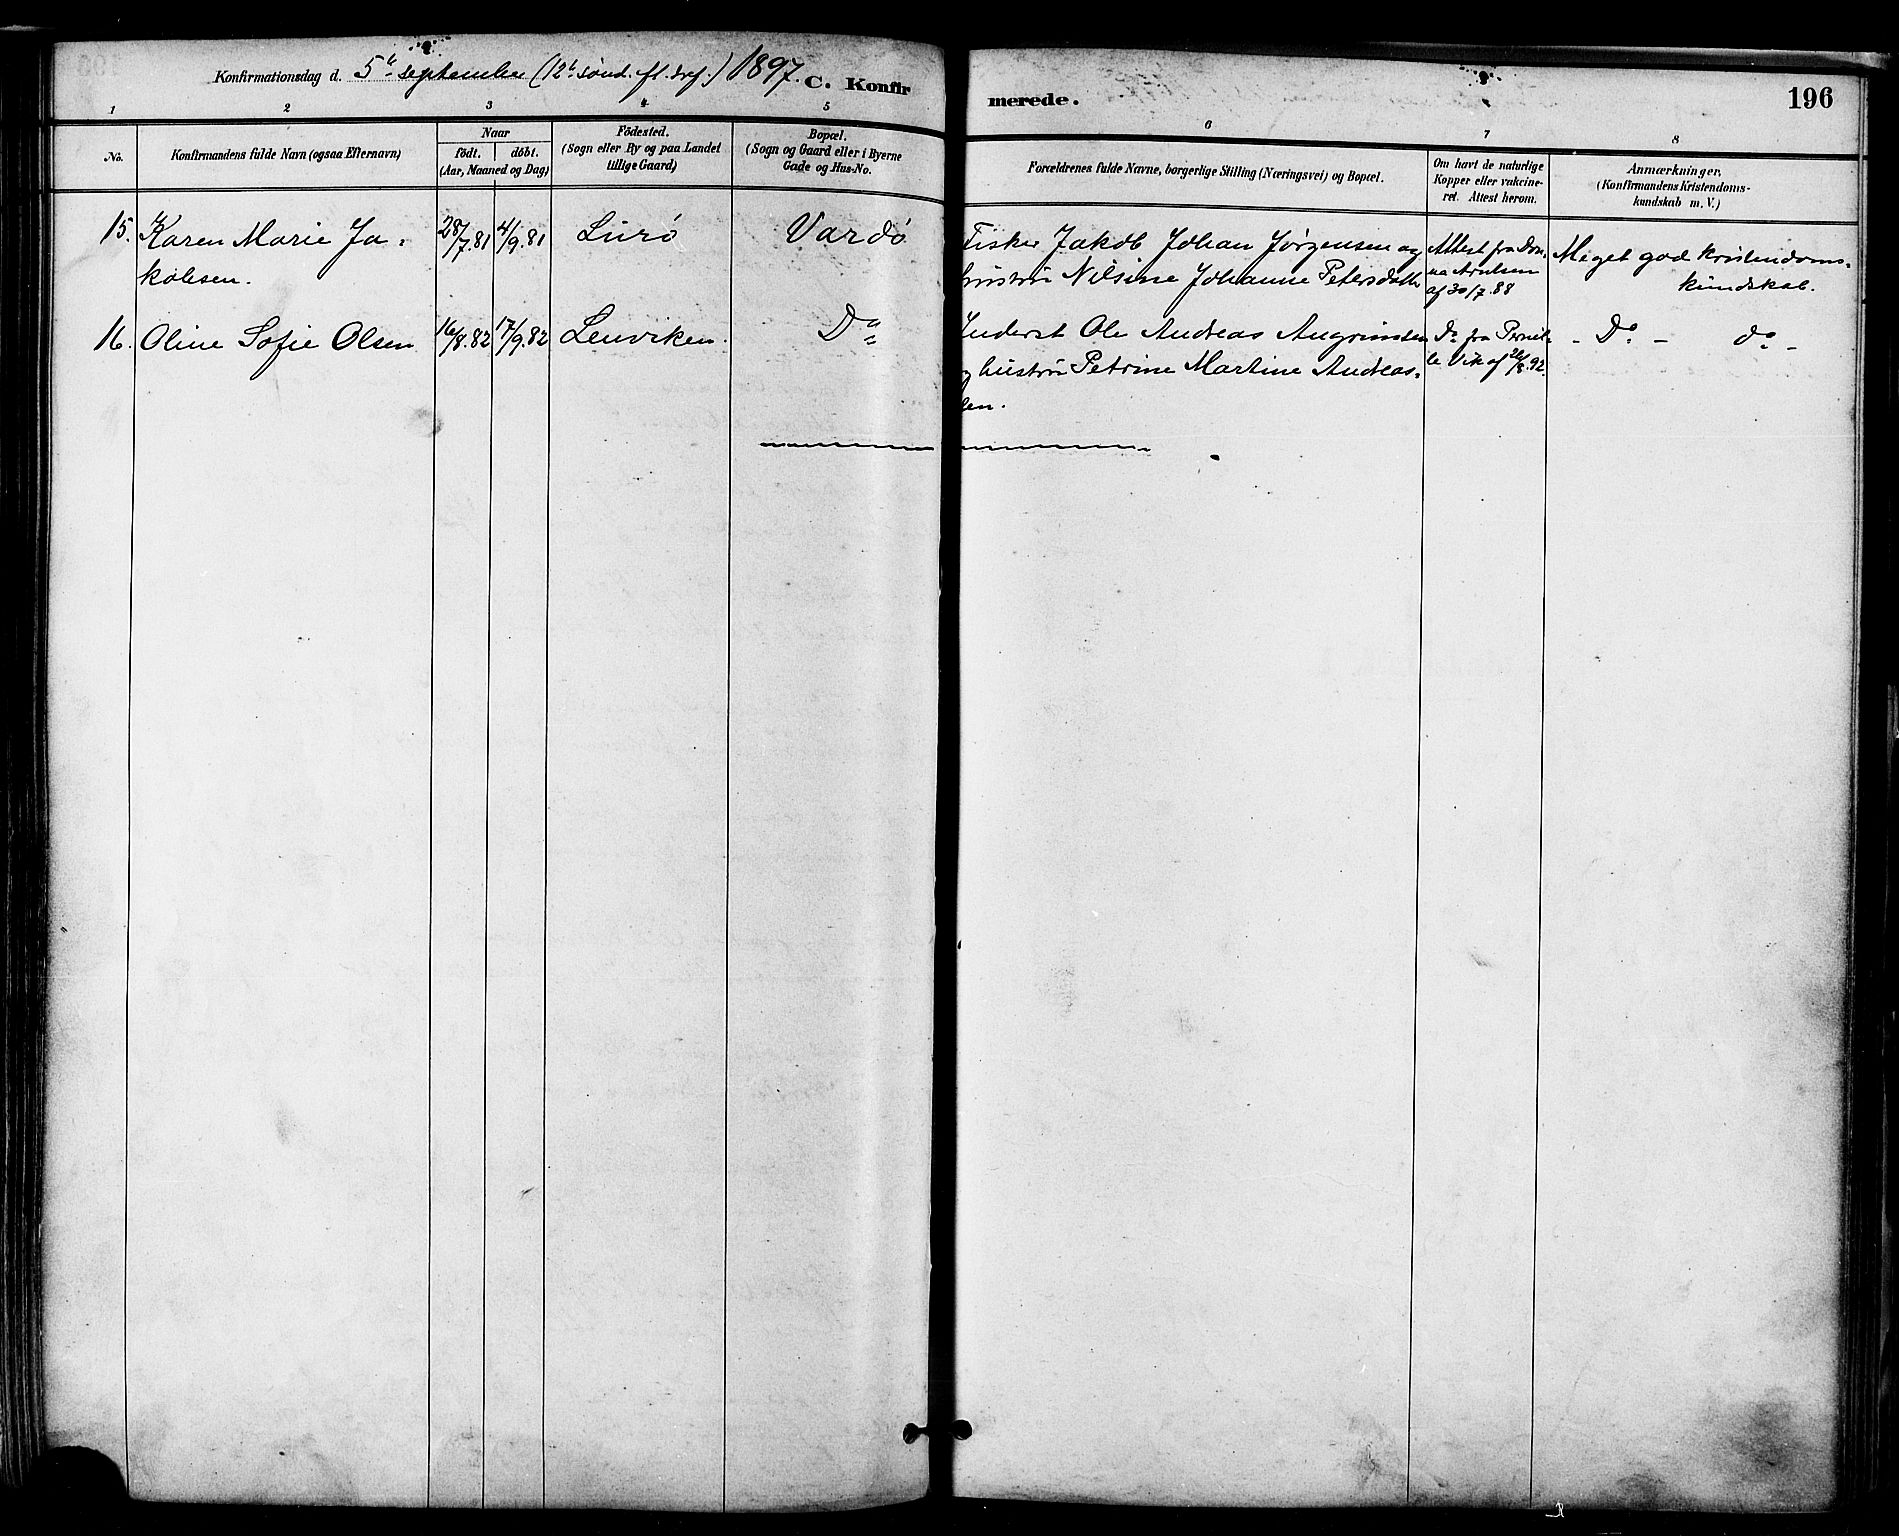 Konfirmationsdag d. 5te september (12te sønd. ft. tref.) 1897. C. Konfirmerede. 196
1 2 3 4 5 6 7 8
No.
Konfirmandens fulde Navn (ogsaa Efternavn)
Naar
født. døbt.
(Aar, Maaned og Dag)
Fødested.
(Sogn eller By og paa Landet
tillige Gaard)
Bopæl.
(Sogn og Gaard eller i Byerne
Gade og Hus-No.
Forældrenes fulde Navne, borgerlige Stilling (Næringsvei) og Bopæl.
Om havt de naturlige
Kopper eller vakcine-
ret. Attest herom.
Anmærkninger,
(Konfirmandens Kristendoms-
kundskab m. V.)
15. Karen Marie Ja-
kobsen.
28/7.81 4/9.81 Lurø Vardø
Fisker Jakob Johan Jørgensen og
hustru Nilsine Johanne Petersdatter
Attest fra
af 30/7.88
Meget god kristendoms-
kundskab.
16. Oline Sofie Olsen 16/8.82 17/9.82 Lenviken. Do
Inderst Ole Andreas
og hustru Petrine Martine Andreas-
sen.
Do fra Pernil-
le Vik af 26/8.92.
- Do - do -